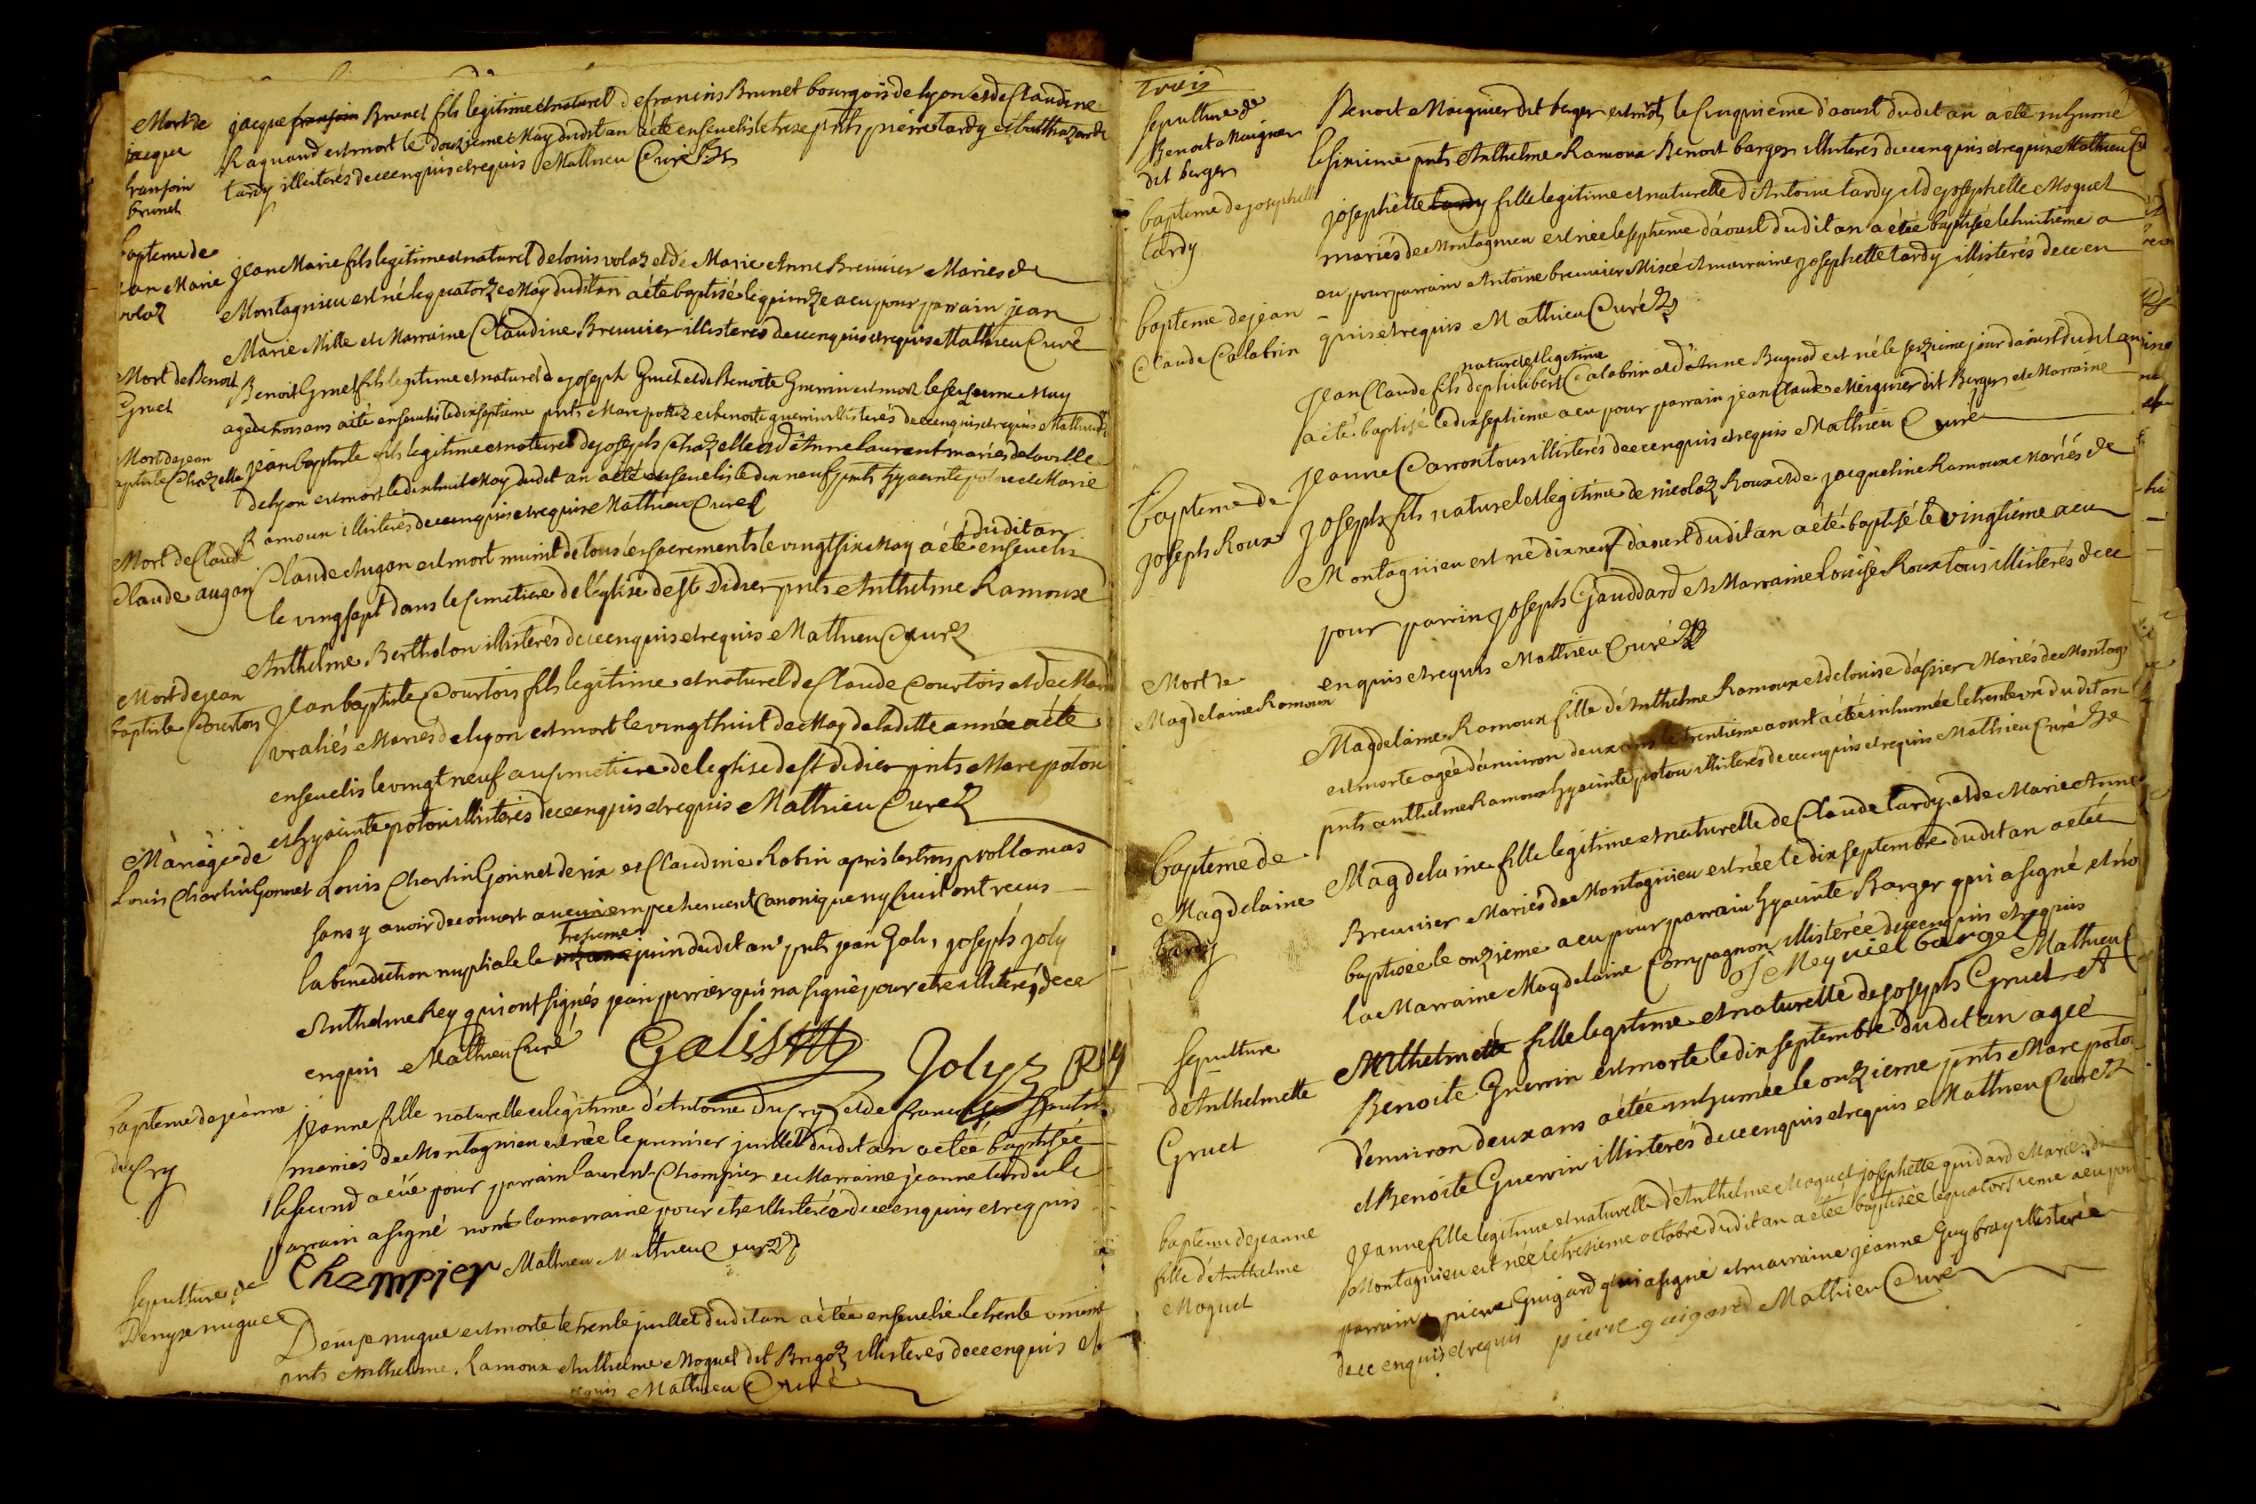 Mort de
jacque
fransois
brunet
jacque fransois Brunet fils legitime et naturel de francois Brunet bourgois de lyon et de Claudine
Raquand est mort le douzieme May dudit an a été enseuelis le treze pnts pierre tardy et balthazarde
tardy illisterés de ce enquis et requis Mathieu Curé
bapteme de
jean Marie
volaz
jean Marie fils legitime et naturel de louis volaz et de Marie Anne Breuuier Mariés de
Montagnieu est né le quatorze May dudit an a été baptisé le quinze a eu pour parrain jean
Marie Mille et Marraine Claudine Breuuier illisterés de ce enquis et requis Mathieu Curé
Mort de Benoit
Gruet
Benoit Gruet fils legitime et naturel de joseph Gruet et de Benoite Guerrin est mort le sezieme May
agé de trois ans a été enseuelis le dix septieme pnts Marc et benoite guerrin illisterés de ce enquis et requis Mathieu
Mort de jean
baptiste Chazelle
jean baptiste fils legitime et naturel de joseph Chazelle et d'Anne laurent mariés de la ville
de lyon est mort le dix huit May dudit an a été enseuelis le dix neuf pnts hyacinte et Marie
Ramoux illisterés de ce enquis et requis Mathieu Curé
Mort de Claude
Claude augan
dudit an
Claude Augan est mort munit de tous les sacrements le vingt six May a été enseuelis
le ving sept dans le simetiere de l'eglise de st Didier pnts Anthelme Ramoux
Anthelme Bertholon illisterés de ce enquis et requis Mathieu Curé
Mort de jean
baptiste Courtois
Jean baptiste Courtois fils legitime et naturel de Claude Courtois et de Marie
Mariés de lyon est mort le vingt huit de May de la ditte année a été
enseuelis le vingt neuf au simetiere de leglise de st didier pnts Marc poton
et hyacinte poton illisterés de ce enquis et requis Mathieu Curé
Màriage de
Louis Charlin Gonnet
Louis Charlin Gonnet de rix et Claudine Robin apres les trois
sans y auoir decouuert aucun empechement Canonique ny Ciuil ont recus
tresieme
la benediction nuptiale le juin dudit an pnts jean Galis, joseph joly
Anthelme Rey qui ont signés jean perrier qui na signé pour etre illiteré de ce
enquis Mathieu Curé
Galis Joly Rey
bapteme de jeanne
duCry
Jeanne fille naturelle et legitime d'Antoine duCry et de francoise
mariés de Montagnieu est née le premier juillet dudit an a été baptisée
le second a eüe pour parrain laurent Champier et Marraine jeanne
parrain a signé non la marraine pour etre illisterée de ce enquis et requis
Champier Mathieu Mathieu Curé
Sepulture de
Denyse nugue
Denise nugue est morte le trente juillet dudit an a étée enseuelie le trente unieme
pnts Anthelme Ramoux Anthelme Moguet dit Brigoz illisterés de ce enquis et
requis Mathieu Curé
Trois
Sepulture de
Benoit Maignier
dit berger
Benoit Maignier dit berger est mort le Cinquieme d'aoust dudit an a été inhumé
le sixieme pnts Anthelme Ramoux Benoit barger illisterés de ce enquis et requis Mathieu
bapteme de josephette
tardy
josephette tardy fille legitime et naturelle d'Antoine tardy et de josephette Moguet
mariés de Montagnieu est née le septieme d'aoust dudit an a étée baptisée le huitieme a
eu pour parrain Antoine breuuier Misée et marraine josephette tardy illisterés de ce en
quis et requis Mathieu Curé
bapteme de jean
Claude Calabrin
naturel et legitime
Jean Claude fils de philibert Calabrin et d'Anne Bugnod est né le sezieme jour d'aoust dudit an
a été baptisé le dix septieme a eu pour parrain jean Claude Meignier dit Berger et Marraine
Jeanne Carron tous illisterés de ce enquis et requis Mathieu Curé
bapteme de
joseph Roux
joseph fils naturel et legitime de nicolaz Roux et de jacqueline Ramoux Mariés de
Montagnieu est né dix neuf d'aoust dudit an a été baptisé le vingtieme a eu
pour parrin joseph Gauddard et Marraine louise Roux tous illisterés de ce
enquis et requis Mathieu Curé
Mort de
Magdelaine Ramoux
Magdelaine Ramoux fille d'Anthelme Ramoux et de louise dassier Mariés de Montag
est morte agée d'anuiron deux ans le trentieme aoust a étée inhumée le trente un dudit an
pnts anthelme Ramoux hyacinte poton illisterés de ce enquis et requis Mathieu Curé
bapteme de
Magdelaine
tardy
Magdelaine fille legitime et naturelle de Claude tardy et de Marie Anne
Breuuier Mariés de Montagnieu est née le dix septembre dudit an a étée
baptisée le onzieme a eu pour parrain hyacinte Barger qui a signé et no
la Marraine Magdelaine Compagnon illisterée de ce enquis et requis
Mathieu
Sepulture
d'Anthelmette
Gruet
Anthelmette fille legitime et naturelle de joseph Gruet et
Benoite Guerrin est morte le dix septembre dudit an agée
denuiron deux ans a étée inhumée le onzieme pnts Marc poton
et Benoite Guerrin illisterés de ce enquis et requis Mathieu Curé
bapteme de jeanne
fille d'Anthelme
Moguet
Jeanne fille legitime et naturelle d'Anthelme Moguet josephette guidard Mariés de
Montagnieu est née le tresieme octobre dudit an a étée baptisée le quatorsieme a eu pour
parrain pierre Guigard qui a signé et marraine jeanne Guybray illisterée
de ce enquis et requis pierre guigard Mathieu Curé